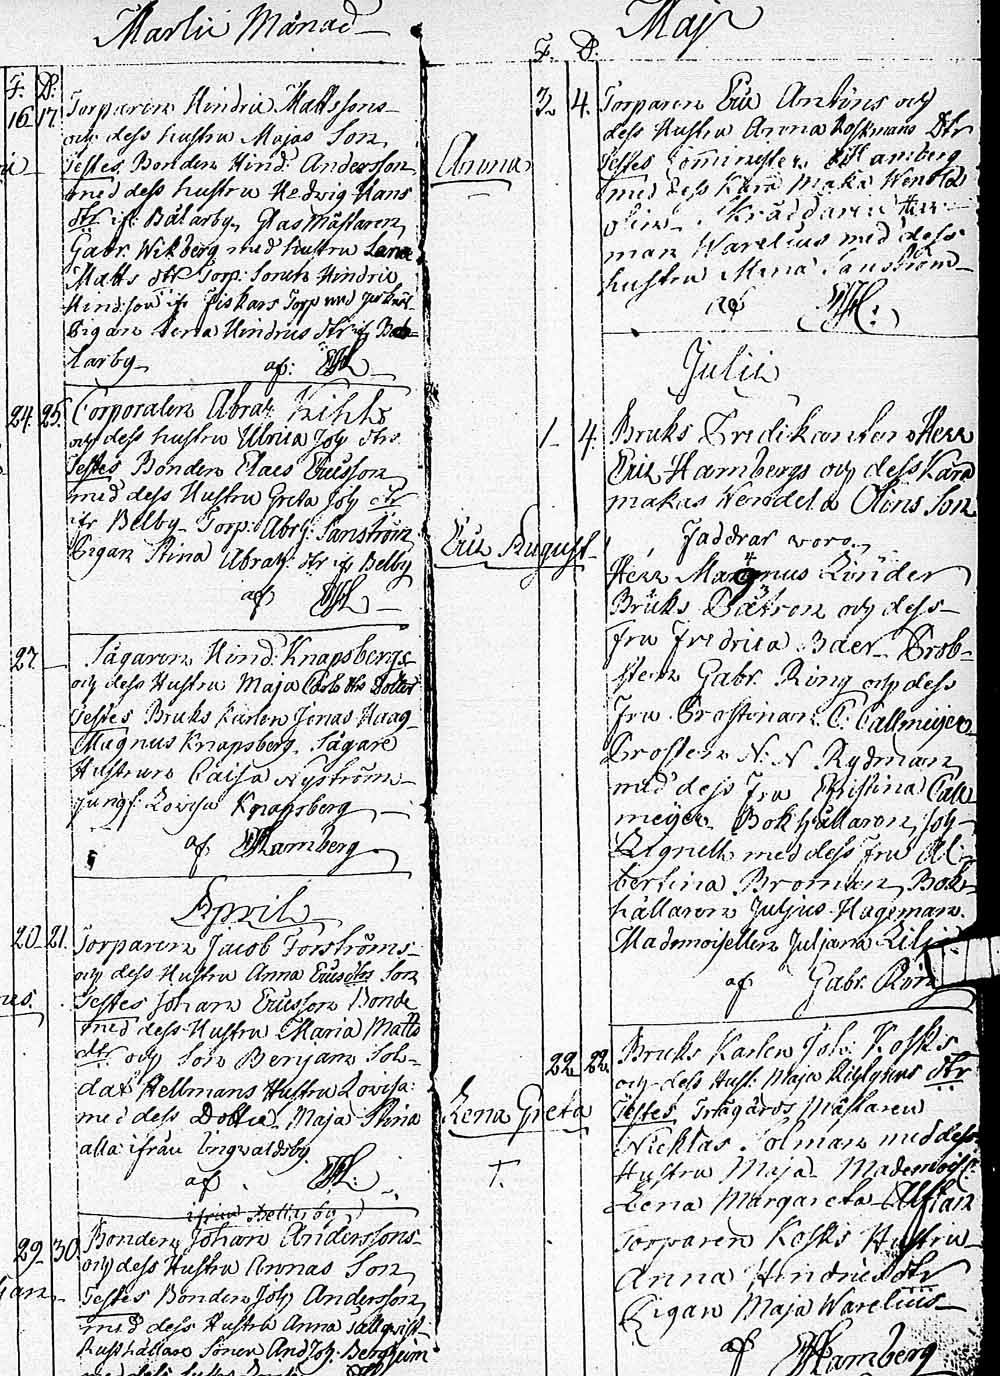 Martii Månad
F. D.
16 17. Torparen Hindric Mattssons
och dess hustru Majas Son
Testes Bonden Hind: Andersson
med dess hustru Hedwig Hans
dtr if: Bälarby, Glas Mästaren
Gabr. Wikberg med hustru Lena
Matts dtr Torp: Hindric
Hindsson ifr Fiskars Torp med
Pigan Lena Hindrics dtr if: Bä-
larby af: EH
24. 25. Corporalen Abrah: Kihls
och dess hustru Ulrica Joh dtrs
Testes Bonden Claes Ericsson
med dess Hustru Greta Joh dtr
ifr Belby Torp: Abrh: Sanström
Pigan Stina Abrah: dtr if Belby
af EH
27. Sågaren Hind: Knapsbergs
och dess Hustru Maja dotter
Testes Bruks Karlen Jonas Haag
Magnus Knapsberg Sågare
Hustrun Caisa Nyström
jungf: Lovisa Knapsberg
af EHamberg
April
20 21. Torparen Jacob Forströms
och dess Hustru Anna Son
Testes Johan Ericsson Bonde
med dess Hustru Maria Matts
dtr och Son Benjam Sol-
dat Hellmans Hustru Lovisa
med dess Dotter Maja Stina
alla ifrån Ingvaldsby
af EH:
ifrån
29 30 Bonden Johan Anderssons
och dess Hustru Annas Son
Testes Bonden Joh Andersson
med dess Hustru Anna
Rusthållare Sonen And Joh:
Maji
F. D.
3. 4. Torparen Eric Antins och
dess Hustru Anna Koskmans Dtr
Anna
Testes Comminister EHamberg
med dess Kära Maka Wendla
Olin Skräddaren Her-
man Warelius med dess
hustru Mina Sanström
af EH:
Julii
1 4. Bruks Predikanten Herr
Eric Hambergs och dess Kära
makas Wendela Olins Son
Eric August
Faddrar woro
Herr Magnus Linder
Bruks Patron och dess
Fru Fredrica Baer Prob-
sten Gabr. Ring och dess
Fru Prostinan C: Callmeijer
Prosten N: N Rydman
med dess Fru Christina Call
meijer Bokhållaren Joh
Lignell med dess Fru Al-
bertina Broman Bok-
hållaren Juljus Hageman
Mademoisellen Juljana
af Gabr. Ring
22 22. Bruks Karlen Joh: Kosks
och dess Hust: Maja dtr
Lena Greta
T.
Testes Trägårds Mästaren
Nicklas Solman med dess
Hustru Maja Mademois:
Lena Margareta Alftan
Torparen Kosks Hustru
Anna Hindrics dtr
Pigan Maja Warelius
af EHamberg